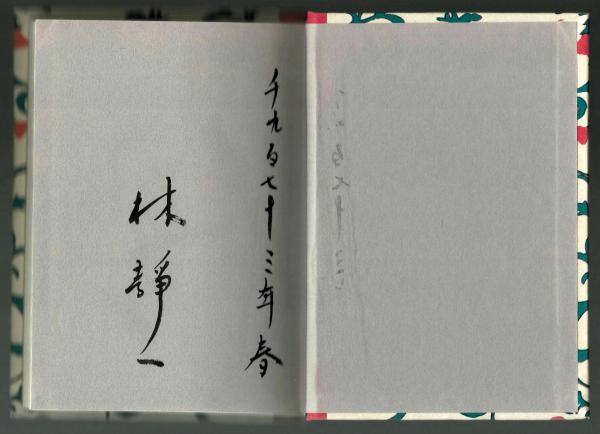 千九百七十三年春
林静一